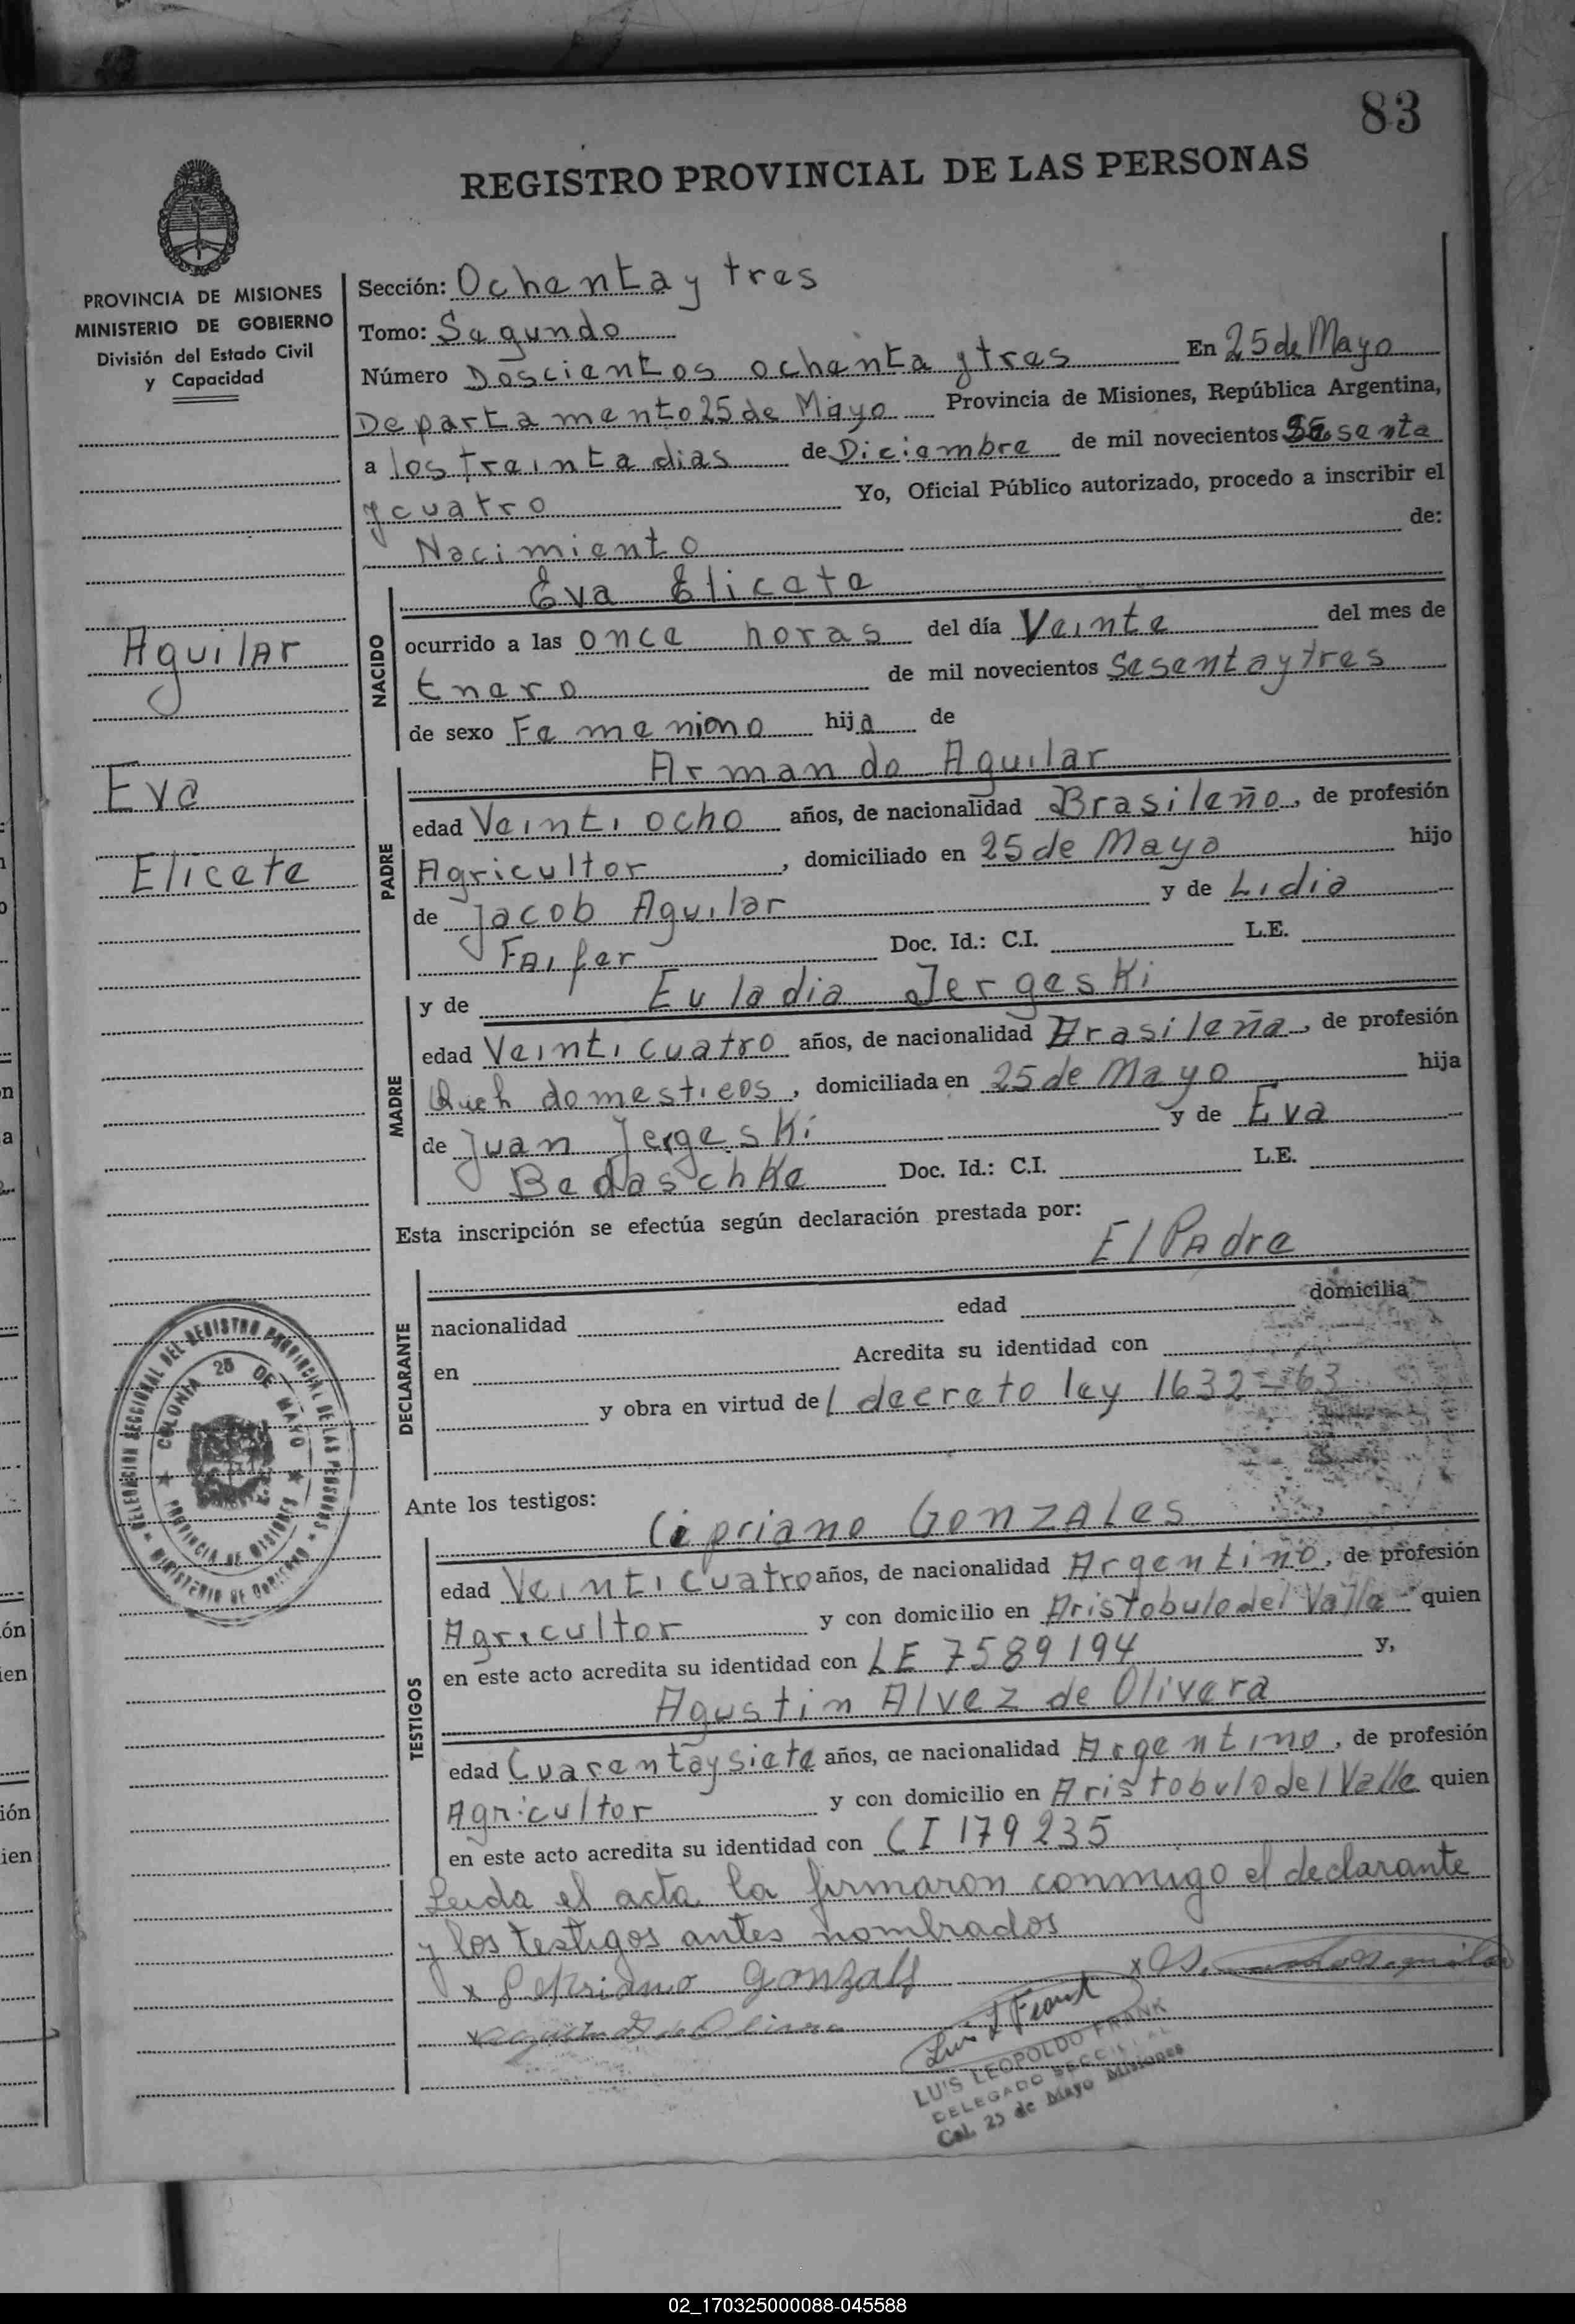 83
REGISTRO PROVINCIAL DE LAS PERSONAS
PROVINCIA DE MISIONES
MINISTERIO DE GOBIERNO
División del Estado Civil
y Capacidad
Aguilar
Eva
Elicete
Sección: Ochenta y tres
Tomo: Segundo
Número Doscientos ochenta y tres En 25 de Mayo
Departamento 25 de Mayo Provincia de Misiones, República Argentina,
a los treinta dias de Diciembre de mil novecientos Sesenta
y cuatro Yo, Oficial Público autorizado, procedo a inscribir el
Nacimiento de:
NACIDO
Eva Elicete
ocurrido a las once horas del día Veinte del mes de
Enero de mil novecientos Sesenta y tres
de sexo Femeniono hija de
PADRE
Armando Aguilar
edad Veinti ocho años, de nacionalidad Brasileño, de profesión
Agricultor, domiciliado en 25 de Mayo hijo
de Jacob Aguilar y de Lidia
Faifer Doc. Id.: C.I. L.E.
MADRE
y de Euladia Jergeski
edad Veinti cuatro años, de nacionalidad Brasileña, de profesión
Queh domesticos, domiciliada en 25 de Mayo hija
de Juan Jergeski y de Eva
Bedaschke Doc. Id.: C.I. L.E.
Esta inscripción se efectúa según declaración prestada por:
El Padre
DECLARANTE
nacionalidad edad domicilia
en Acredita su identidad con
y obra en virtud del decreto ley 1632-63
Ante los testigos:
TESTIGOS
Cipriano Gonzales
edad Veinti cuatro años, de nacionalidad Argentino, de profesión
Agricultor y con domicilio en Aristobulo del Valle quien
en este acto acredita su identidad con LE 7589194 y,
Agustin Alvez de Olivera
edad Cuarenta y siete años, de nacionalidad Argentino, de profesión
Agricultor y con domicilio en Aristobulo del Valle quien
en este acto acredita su identidad con CI 179235
Leida el acta la firmaron conmigo el declarante
y los testigos antes nombrados
Luis L Frank
LUIS LEOPOLDO FRANK
DELEGADO SECCIONAL
Col. 25 de Mayo Misiones
DELEGACION SECCIONAL DEL REGISTRO PROVINCIAL DE LAS PERSONAS
MINISTERIO DE GOBIERNO
COLONIA 25 DE MAYO
PROVINCIA DE MISIONES
02_170325000088-045588